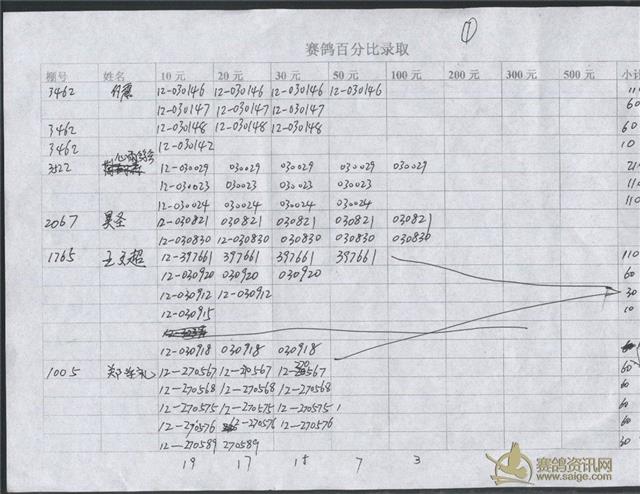 ①
赛鸽百分比录取
棚号 姓名 10元 20元 30元 50元 100元 200元 300元 500元 小计
3462 12-030146 12-030146 12-030146 12-030146 110
12-030147 12-030147 12-030147 60
3462 12-030148 12-030148 12-030148 60
3462 12-030142 10
3122 12-030029 030029 030029 030029 030029 21
12-030023 030023 030023 030023 11
12-030024 030024 030024 030024 11
2067 吴圣 12-030821 030821 030821 030821 030821
12-030830 12-030830 030830 030830 030830
1765 王文超 12-397661 397661 397661 397661 110
12-030920 030920 030920 60
12-030912 12-030912 30
12-030915 10
12-030918 030918 030918
1005 12-270567 12-270567 12-270567 60
12-270568 12-270568 12-270568 60
12-270575 12-270575 12-270575 60
12-270576 12-270576 12-270576 60
12-270589 270589 30
19 17 15 7 3
赛鸽资讯网
www.saige.com